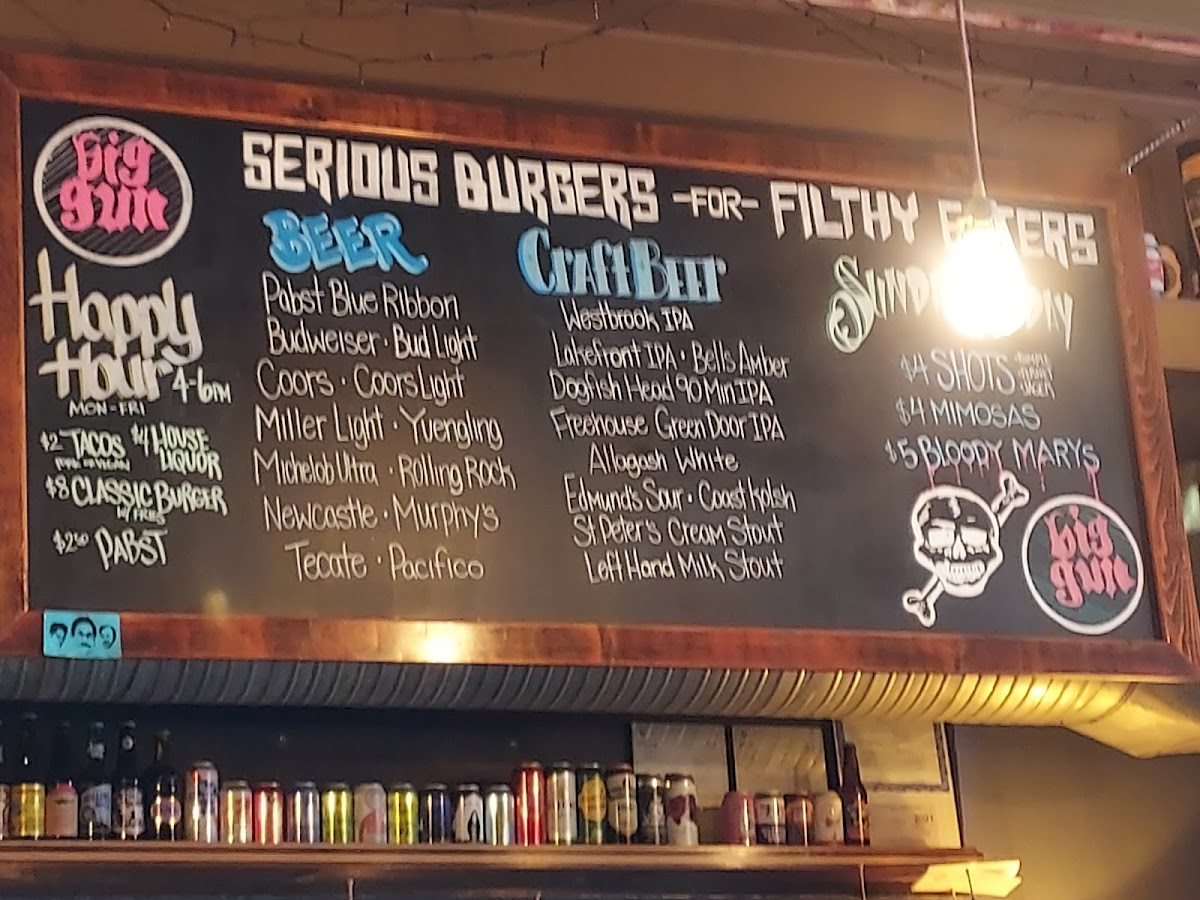 big
gun
SERIOUS BURGERS -FOR- FILTHY EATERS
Happy
Hour 4-6PM
MON-FRI
$2 TACOS
$4 HOUSE
LIQUOR
$8 CLASSIC BURGER
W/ FRIES
$2.50 PABST
BEER
Pabst Blue Ribbon
Budweiser · Bud Light
Coors · Coors Light
Miller Light · Yuengling
Michelob Ultra · Rolling Rock
Newcastle · Murphy's
Tecate · Pacifico
Craft Beer
Westbrook IPA
Lakefront IPA · Bells Amber
Dogfish Head 90 Min IPA
Freehouse Green Door IPA
Allagash White
Edmund's Sour · Coast Kolsh
St Peter's Cream Stout
Left Hand Milk Stout
$4 SHOTS
$4 MIMOSAS
$5 BLOODY MARYS
big
gun